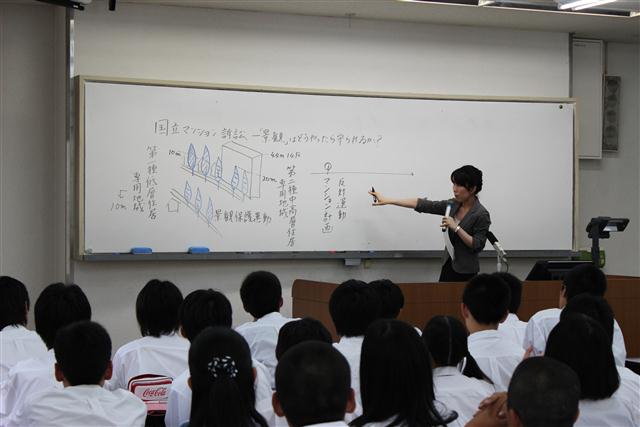 国立マンション訴訟 ―「景観」はどうやったら守られるか?
10m
44m 14F
20m
第一種低層住居
専用地域
10m
景観保護運動
第二種中高層住居
専用地域
①マンション計画
反対運動
Coca-Cola